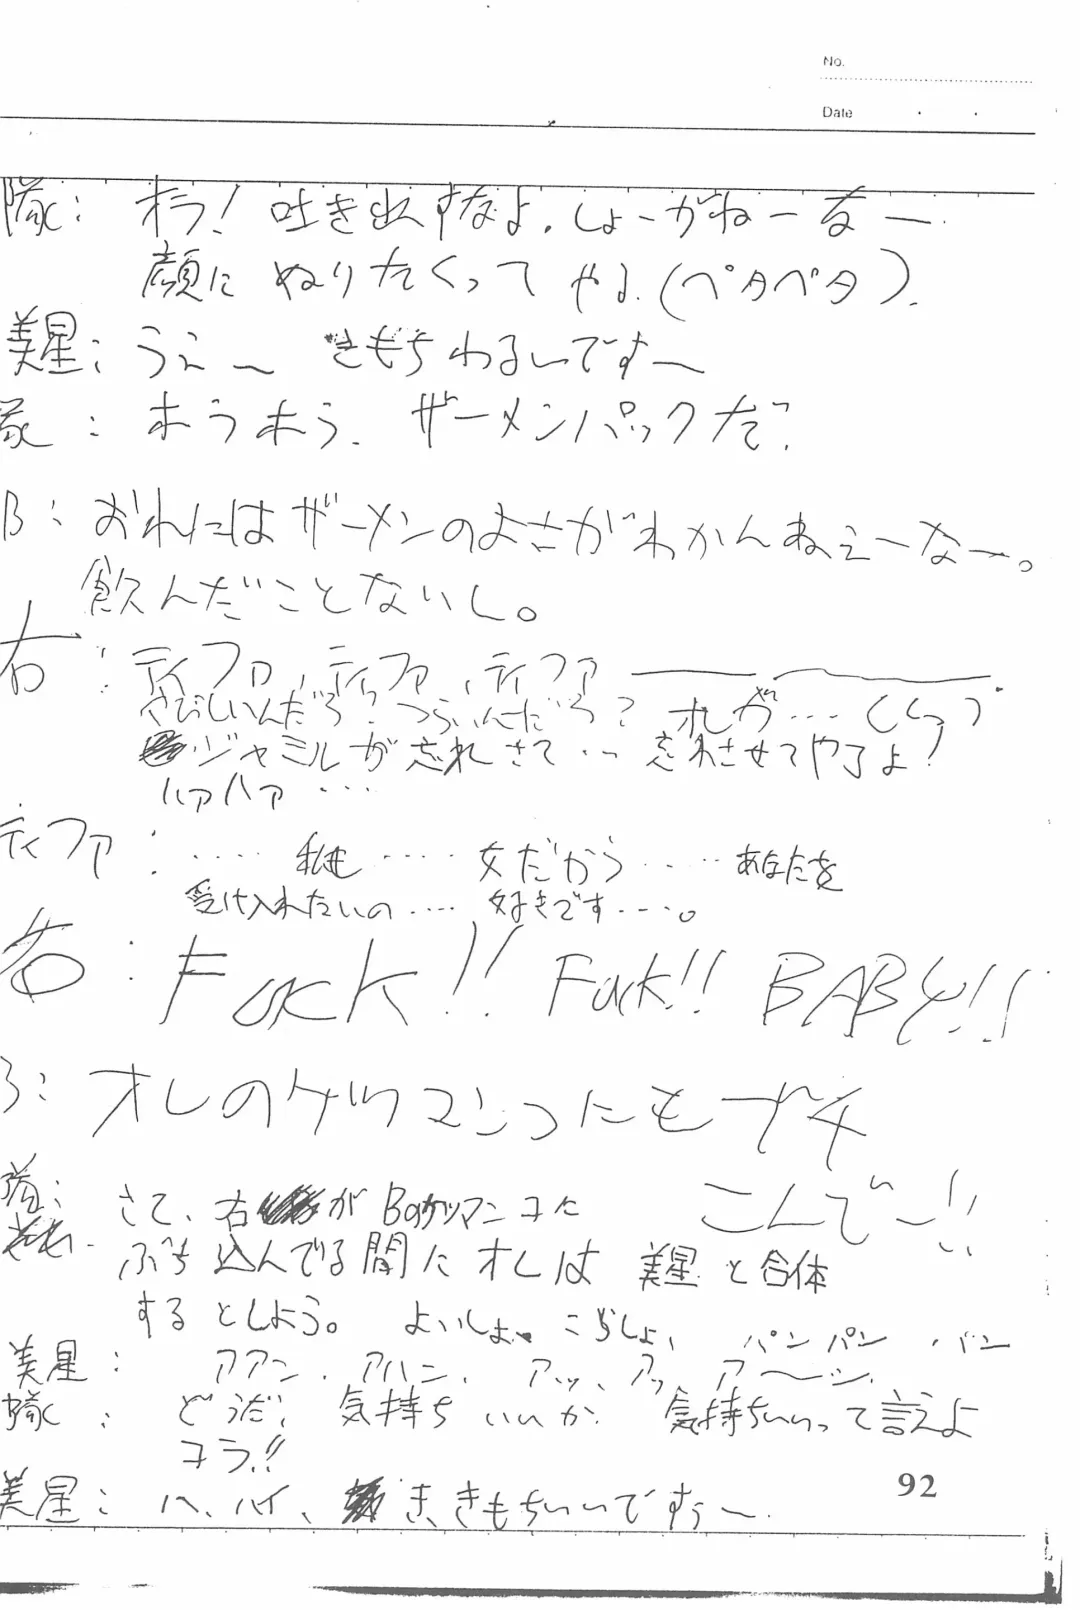 No.
Date
隊: オラ! 吐き出すなよ。しょーがねーなー
顔に ぬりたくって やる。(ペタペタ)。
美星: うえ〜 きもちわるいですー
隊: ホラホラ、ザーメンパックだ?
B: おれにはザーメンのよさがわかんねえーなー。
飲んだことないし。
右: ティファ、ティファ、ティファ
さびしいんだろ?つらいんだろ? オレが…くくっ
ジャミルが忘れさて…忘れさせてやるよ!
ハァハァ…
ティファ: ……私も……女だから……あなたを
受け入れたいの……好きです……。
右: Fuck!! Fuck!! BABY!!
B: オレのケツマンコにもブチ
こんで〜!!
隊: さて、右がBのケツマンコに
ぶち込んでる間にオレは 美星と合体
するとしよう。よいしょ、こらしょ、パンパン パン
美星: アアン、アハン、アッ、アッ、ア〜ン。
隊: どうだ、気持ちいいか 気持ちいいって言えよ
コラ!!
美星: ハ、ハイ、き、きもちいいですぅー
92